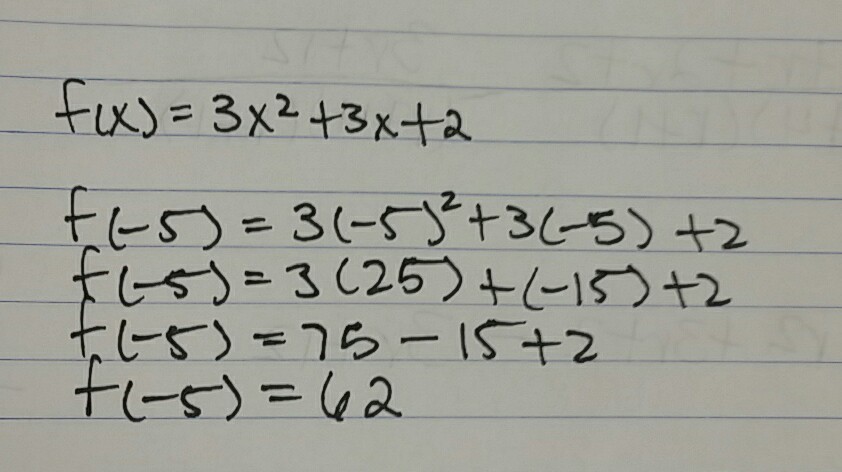 f(x) = 3x² + 3x + 2
f(-5) = 3(-5)² + 3(-5) + 2
f(-5) = 3(25) + (-15) + 2
f(-5) = 75 - 15 + 2
f(-5) = 62